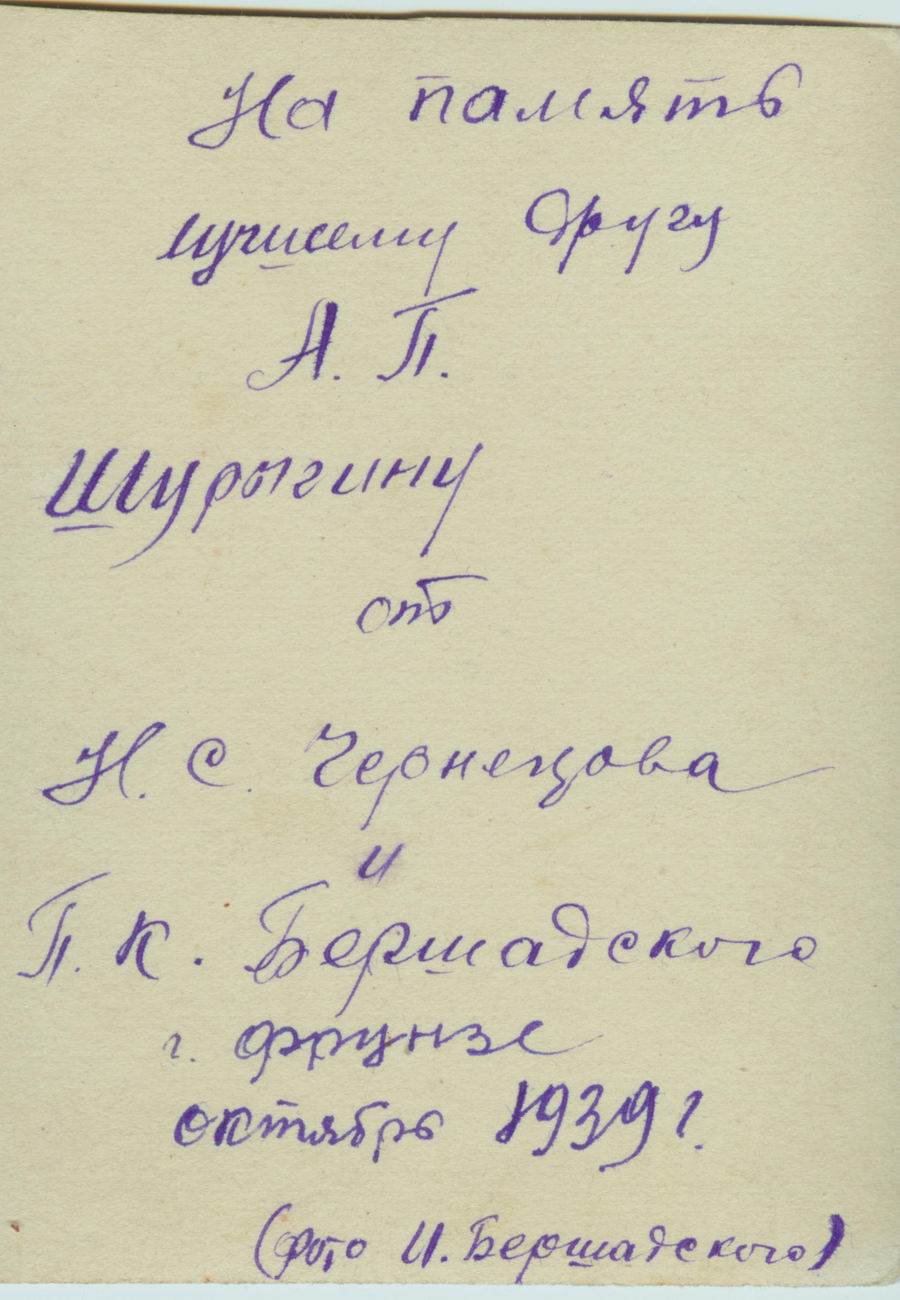 На память
лучшему другу
А. П.
Шурыгину
от
Н. С. Чернецова
и
П. К. Бершадского
г. Фрунзе
октябрь 1939 г.
(фото И. Бершадского)